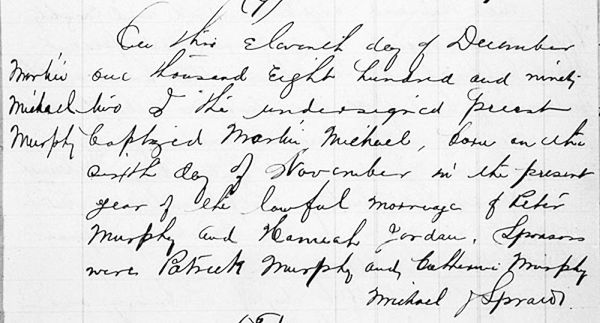 (7)
On this eleventh day of December
Martin one thousand Eight hundred and ninety
Michael two I the undersigned priest
Murphy baptized Martin, Michael, born on the
sixth day of November in the present
year of the lawful marriage of Peter
Murphy and Hannah Jordan. Sponsors
were Patrick Murphy and Catherine Murphy
Michael J